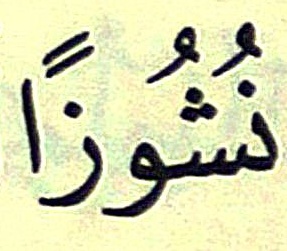 نُشُوزًا